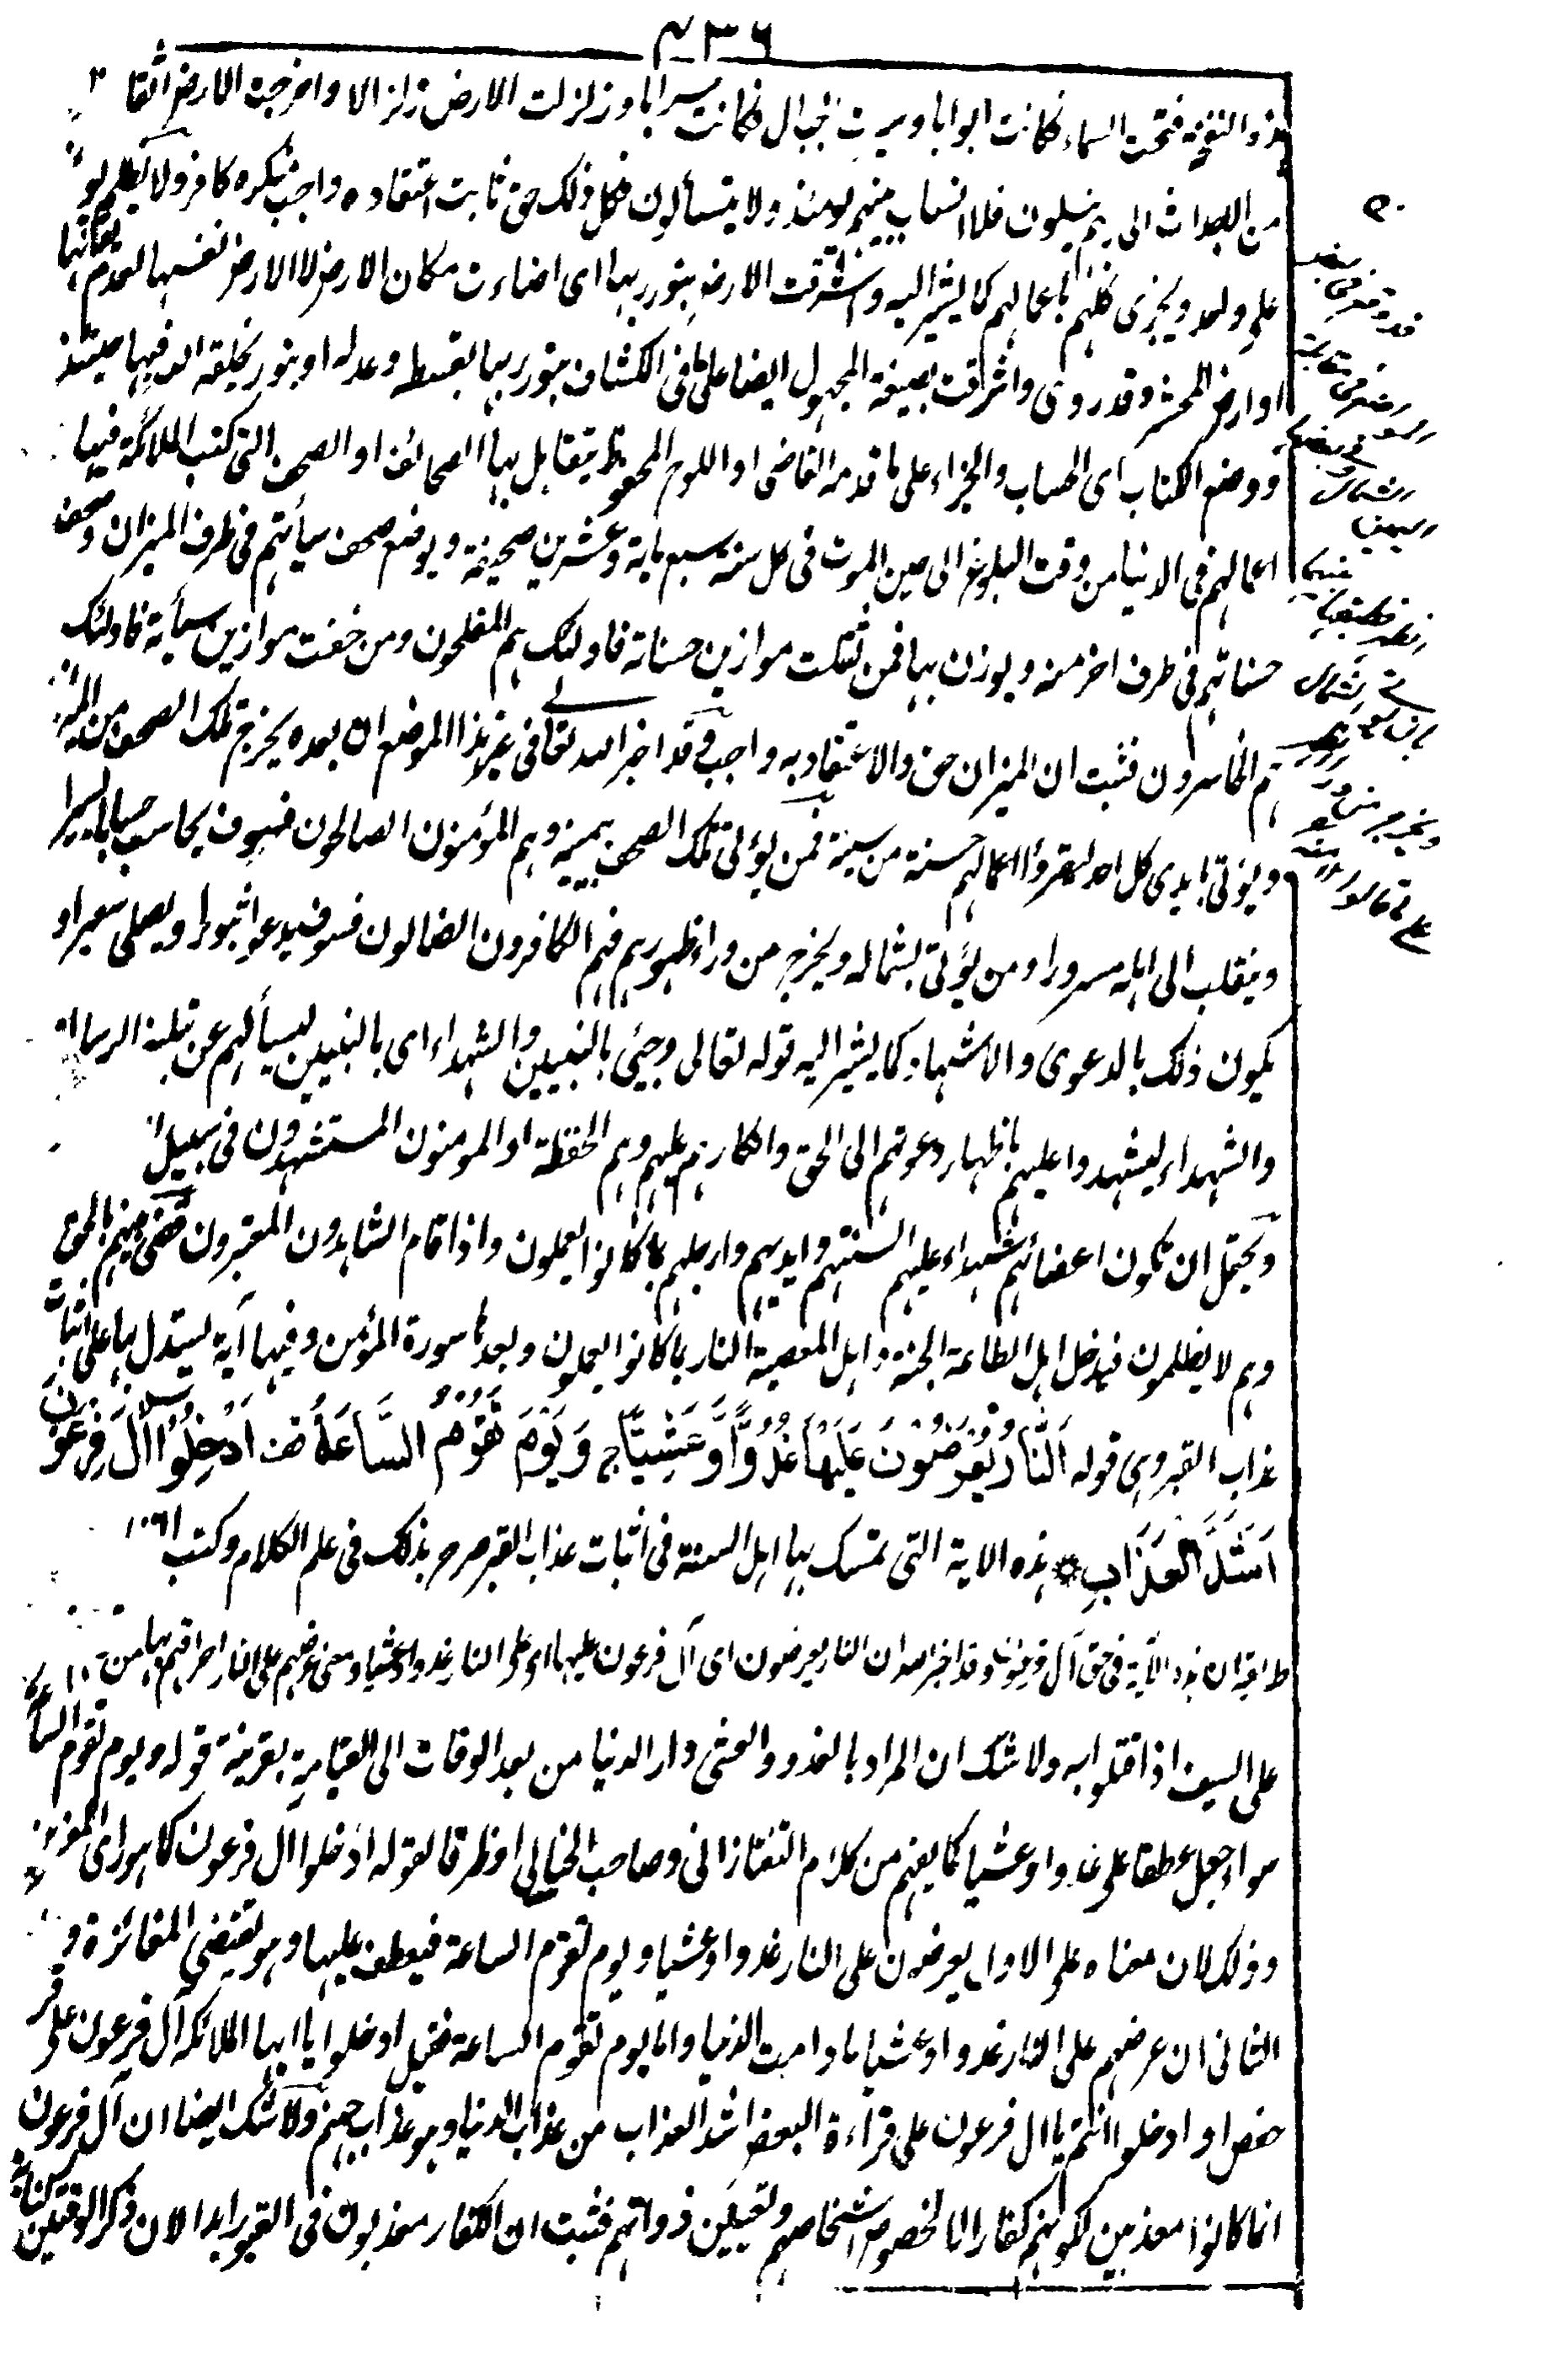 ٤٣٦
هذه النفخة فتحت السماء فكانت ابوابا وسيرت الجبال فكانت سرابا وزلزلت الارض زلزالا واخرجت الارض اثقا
من الاجداث الى ربهم ينسلون فلا انساب بينهم يومئذ ولا يتسألون فكل ذلك حق ثابت اعتقاده واجب منكره كافر ولا يظلم
على ولحد ويجزى كلهم باعمالهم كما يشير اليه واشرقت الارض بنور ربها اى اضاءت مكان الارض لا الارض نفسها لعدم بقائها
او ارض المحشر وقد روى واشرقت بصيغة المجهول ايضا على ما فى الكشاف بنور ربها بقسطه وعدله او بنور يخلقه الله فيها حينئذ
ووضع الكتاب اى الحساب والجزاء على ما قدمه القاضى او اللوح المحفوظ يتقابل بها الصحائف او الصحف التى كتب الملائكة فيها
اعمالهم فى الدنيا من وقت البلوغ الى حين الموت فى كل سنة سبع ماية وعشرين صحيفة ويوضع صحف سيأتهم فى طرف الميزان وصحف
حسناتهم فى طرف اخر منه ويوزن بها فمن ثقلت موازين حسناته فاولئك هم المفلحون ومن خفت موازين سيأته فاولئك
هم الخاسرون فثبت ان الميزان حق والاعتقاد به واجب وقد اخبر الله تعالى فى غير هذا الموضع ان بعده يخرج تلك الصحف من
ويؤتى بايدى كل احد ليقرؤا اعمالهم حسنة من سيئة فمن يؤتى تلك الصحف بيمينه وهم المؤمنون الصالحون فسوف يحاسب حسابا يسيرا
وينقلب الى اهله مسرورا ومن يؤتى بشماله ويخرج من وراء ظهورهم فهم الكافرون الضالون فسوف يدعوا ثبورا ويصلى سعيرا و
يكون ذلك بالدعوى والاشهاد كما يشير اليه قوله تعالى وجئ بالنبيين والشهداء اى بالنبيين ليسألهم عن تبليغ الرسالة
والشهداء ليشهدوا عليهم باظهار دعوتهم الى الحق وانكارهم عليهم وهم الحفظة او المومنون المستشهدون فى سبيل
ويحتمل ان تكون اعضائهم شهداء عليهم السنتهم وايديهم وارجلهم بما كانوا يعملون واذا قام الشاهدون المعتبرون قضى بينهم بالحق
وهم لا يظلمون فيدخل اهل الطاعة الجنة واهل المعصية النار بما كانوا يعملون وبعدها سورة المؤمن وفيها آية يستدل بها على اثبات
عذاب القبر وهى قوله اَلنَّارُ يُعْرَضُوْنَ عَلَيْهَا غُدُوًّا وَّعَشِيًّا ج وَيَوْمَ تَقُوْمُ السَّاعَةُ قف اَدْخِلُوْا اٰلَ فِرْعَوْنَ
اَشَدَّ الْعَذَابِ ۞ هذه الاية التى تمسك بها اهل السنة فى اثبات عذاب القبر صرح بذلك فى علم الكلام وكتب
طريقه ان هذه الآية فى حق آل فرعون وقد اخبر الله ان النار يعرضون اى آل فرعون عليها اى على النار غدوا وعشيا ومعنى عرضهم على النار احراقهم بها من
على السيف اذا قتلوا به ولا شك ان المراد بالغدو والعشى دار الدنيا من بعد الوفات الى القيامة بقرينة قوله ويوم تقوم الساعة
سواء جعل عطفا على غدوا وعشيا كما يفهم من كلام التفتازانى وصاحب الخيالى او ظرفا لقوله ادخلوا آل فرعون كما هو راى
وذلك لان معناه على الاول يعرضون على النار غدوا وعشيا ويوم تقوم الساعة فيعطف عليها وهو يقتضى المغائرة و
الثانى ان عرضهم على النار غدوا وعشيا ما دامت الدنيا واما يوم تقوم الساعة فقيل ادخلوا يا ايها الملائكة آل فرعون على
حفص او ادخلوا انتم يا ال فرعون على قراءة البعض اشد العذاب من عذاب الدنيا وهو عذاب جهنم ولا شك ايضا ان آل فرعون
انما كانوا معذبين لكونهم كفارا لا لخصوص اشخاصهم وتعيين ذواتهم فثبت ان الكفار معذبون فى القبور ابدا لان ذكر الوقتين